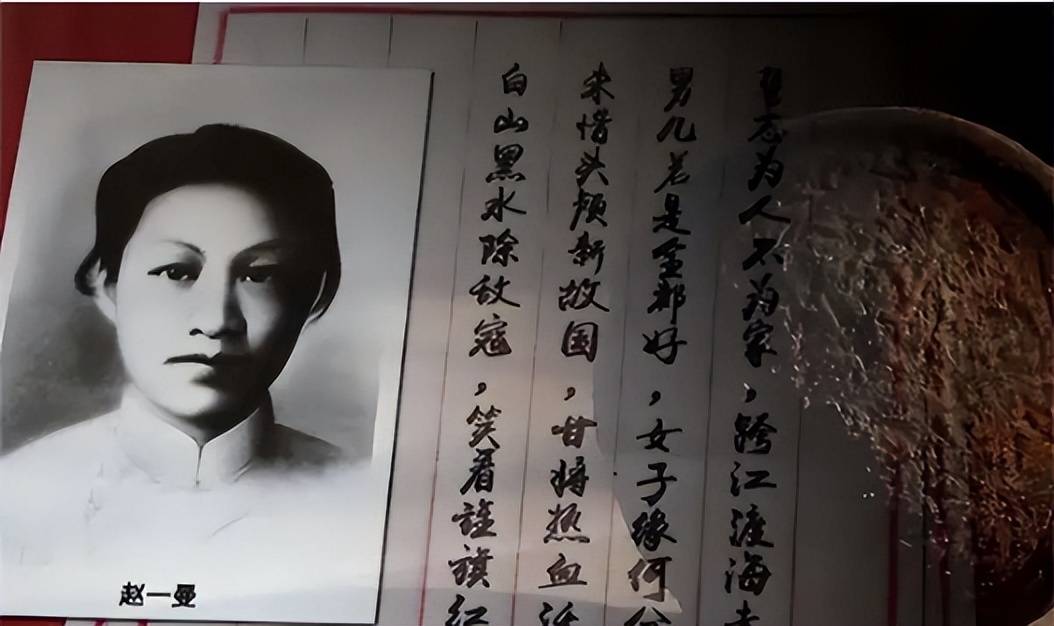 誓志为人不为家,跨江渡海
男儿若是全都好,女子缘何分
未惜头颅新故国,甘将热血沃
白山黑水除敌寇,笑看旌旗红
赵一曼